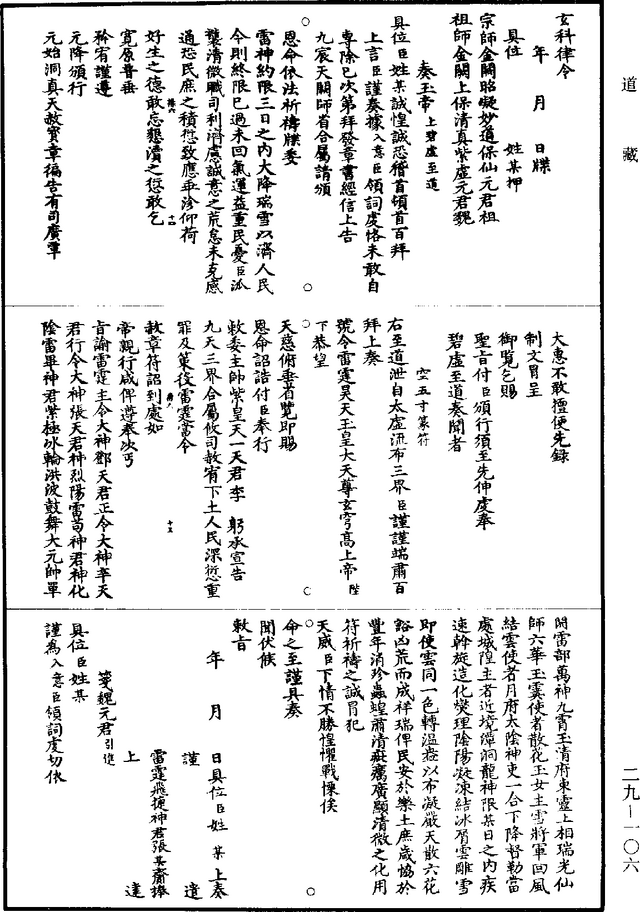 道藏
二九—一〇六
玄科律令
年　月　日牒
具位　姓某押
宗師金闕昭凝妙道保仙元君祖
祖師金闕上保清真紫虛元君魏
奏玉帝上碧虛至道
具位臣姓某誠惶誠恐稽首頓首百拜
上言臣謹奏據入意臣領詞虔恪未敢自
專除已次第拜發章書經信上告
九宸天闕師省合屬請頒
恩命依法祈禱牒委
雷神約限三日之内大降瑞雪以濟人民
今則終限已過未回氣運益重民憂臣泒
襲清微職司利濟慮誠意之荒怠未克感
通恐民庶之積愆致應乖沴仰荷
好生之德敢忘懇瀆之愆敢乞
寬原普垂
矜宥謹遵
元降頒行
元始洞真天赦寶章徧告有司廣覃
大惠不敢擅便先録
制文冒呈
御覧乞賜
聖旨付臣頒行須至先伸虔奉
碧虛至道奏聞者
空五寸篆符
右至道泄自太虛流布三界臣謹謹端肅百
拜上奏
號令雷霆昊天玉皇大天尊玄穹高上帝陛
下恭望
天慈俯垂省覽即賜
恩命詔誥付臣奉行
敕委主帥紫皇天一天君李　躬承宣告
九天三界合屬攸司赦宥下土人民深愆重
罪及策役雷霆當令
赦章符詔到處如
帝親行咸俾遵奉次丐
旨諭雷霆主令大神鄧天君正令大神辛天
君行令大神張天君神烈陽雷苟神君神化
陰雷畢神君紫極冰輪洪波鼓舞大元帥單
開雷部萬神九霄玉清府東靈上相瑞光仙
師六華玉霙使者散花玉女主雪將軍回風
結雲使者月府太陰神吏一合下降督勒當
處城隍主者近境潭洞龍神限某日之内疾
速斡旋造化燮理陰陽凝凍結冰屑雲雕雪
即使雲同一色轉溫燕以布凝嚴天散六花
豁凶荒而成祥瑞俾民安於樂土庶歲恊於
豐年消殄蟲蝗肅清疵癘廣顯清微之化用
符祈禱之誠冒犯
天威臣下情不勝惶懼戰慄俟
命之至謹具奏
聞伏候
敕旨
年　月　日具位臣姓　某　上奏
謹遣
雷霆飛捷神君張某齋捧
上達
箋魏元君引進
具位臣姓某
謹為入意臣領詞虔切依